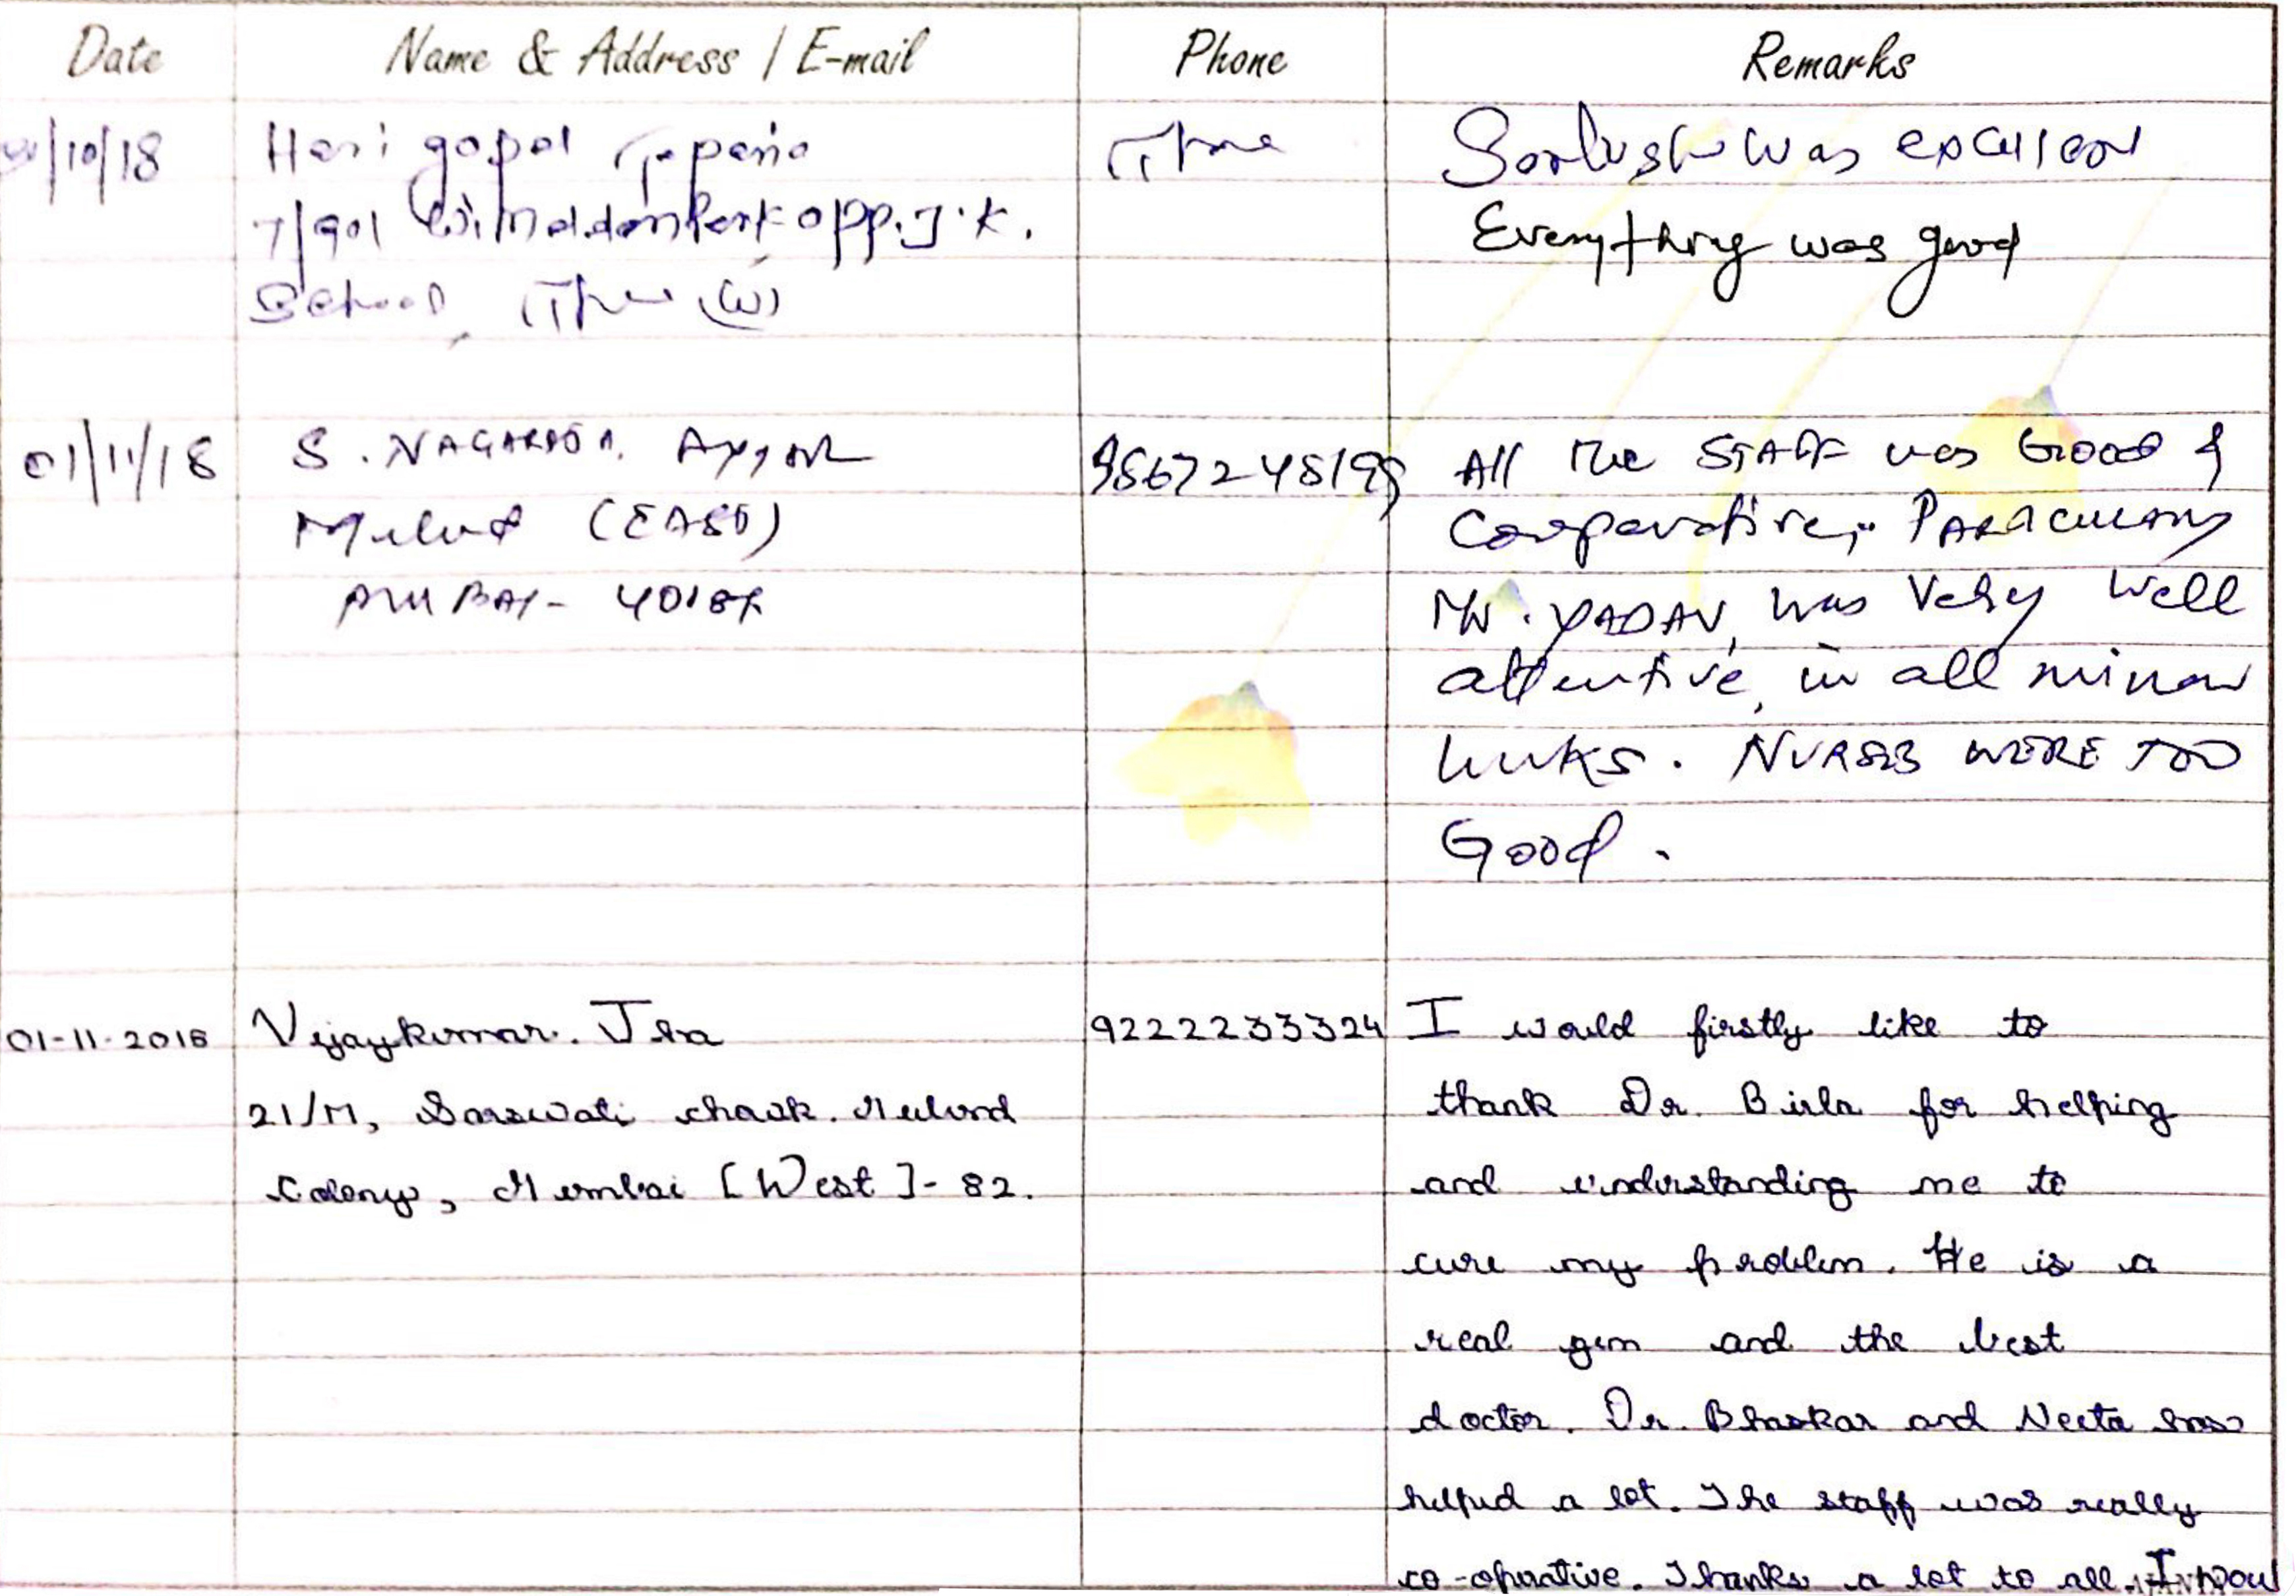 Date Name & Address / E-mail Phone Remarks
/10/18 Hari gopal
7/901 opp. J.K.
School, (W)
was
Everything was good
01/11/18 S. Ayyar All the STAFF was Good &
Mulund (EAST) Cooperative,
Mr. YADAV, was Very Well
attentive, in all minor
. NURSES WERE TOO
Good .
01-11-2018 Vijaykumar. Jha 9222233324 I would firstly like to
21/M, Saraswati chowk. Mulund thank Dr. Birla for helping
Colony, Mumbai [West]- 82. and understanding me to
cure my problem. He is a
real gem and the best
doctor. Dr. Bhaskar and Neeta has
helped a lot. The staff was really
co-operative. Thanks a lot to all. I